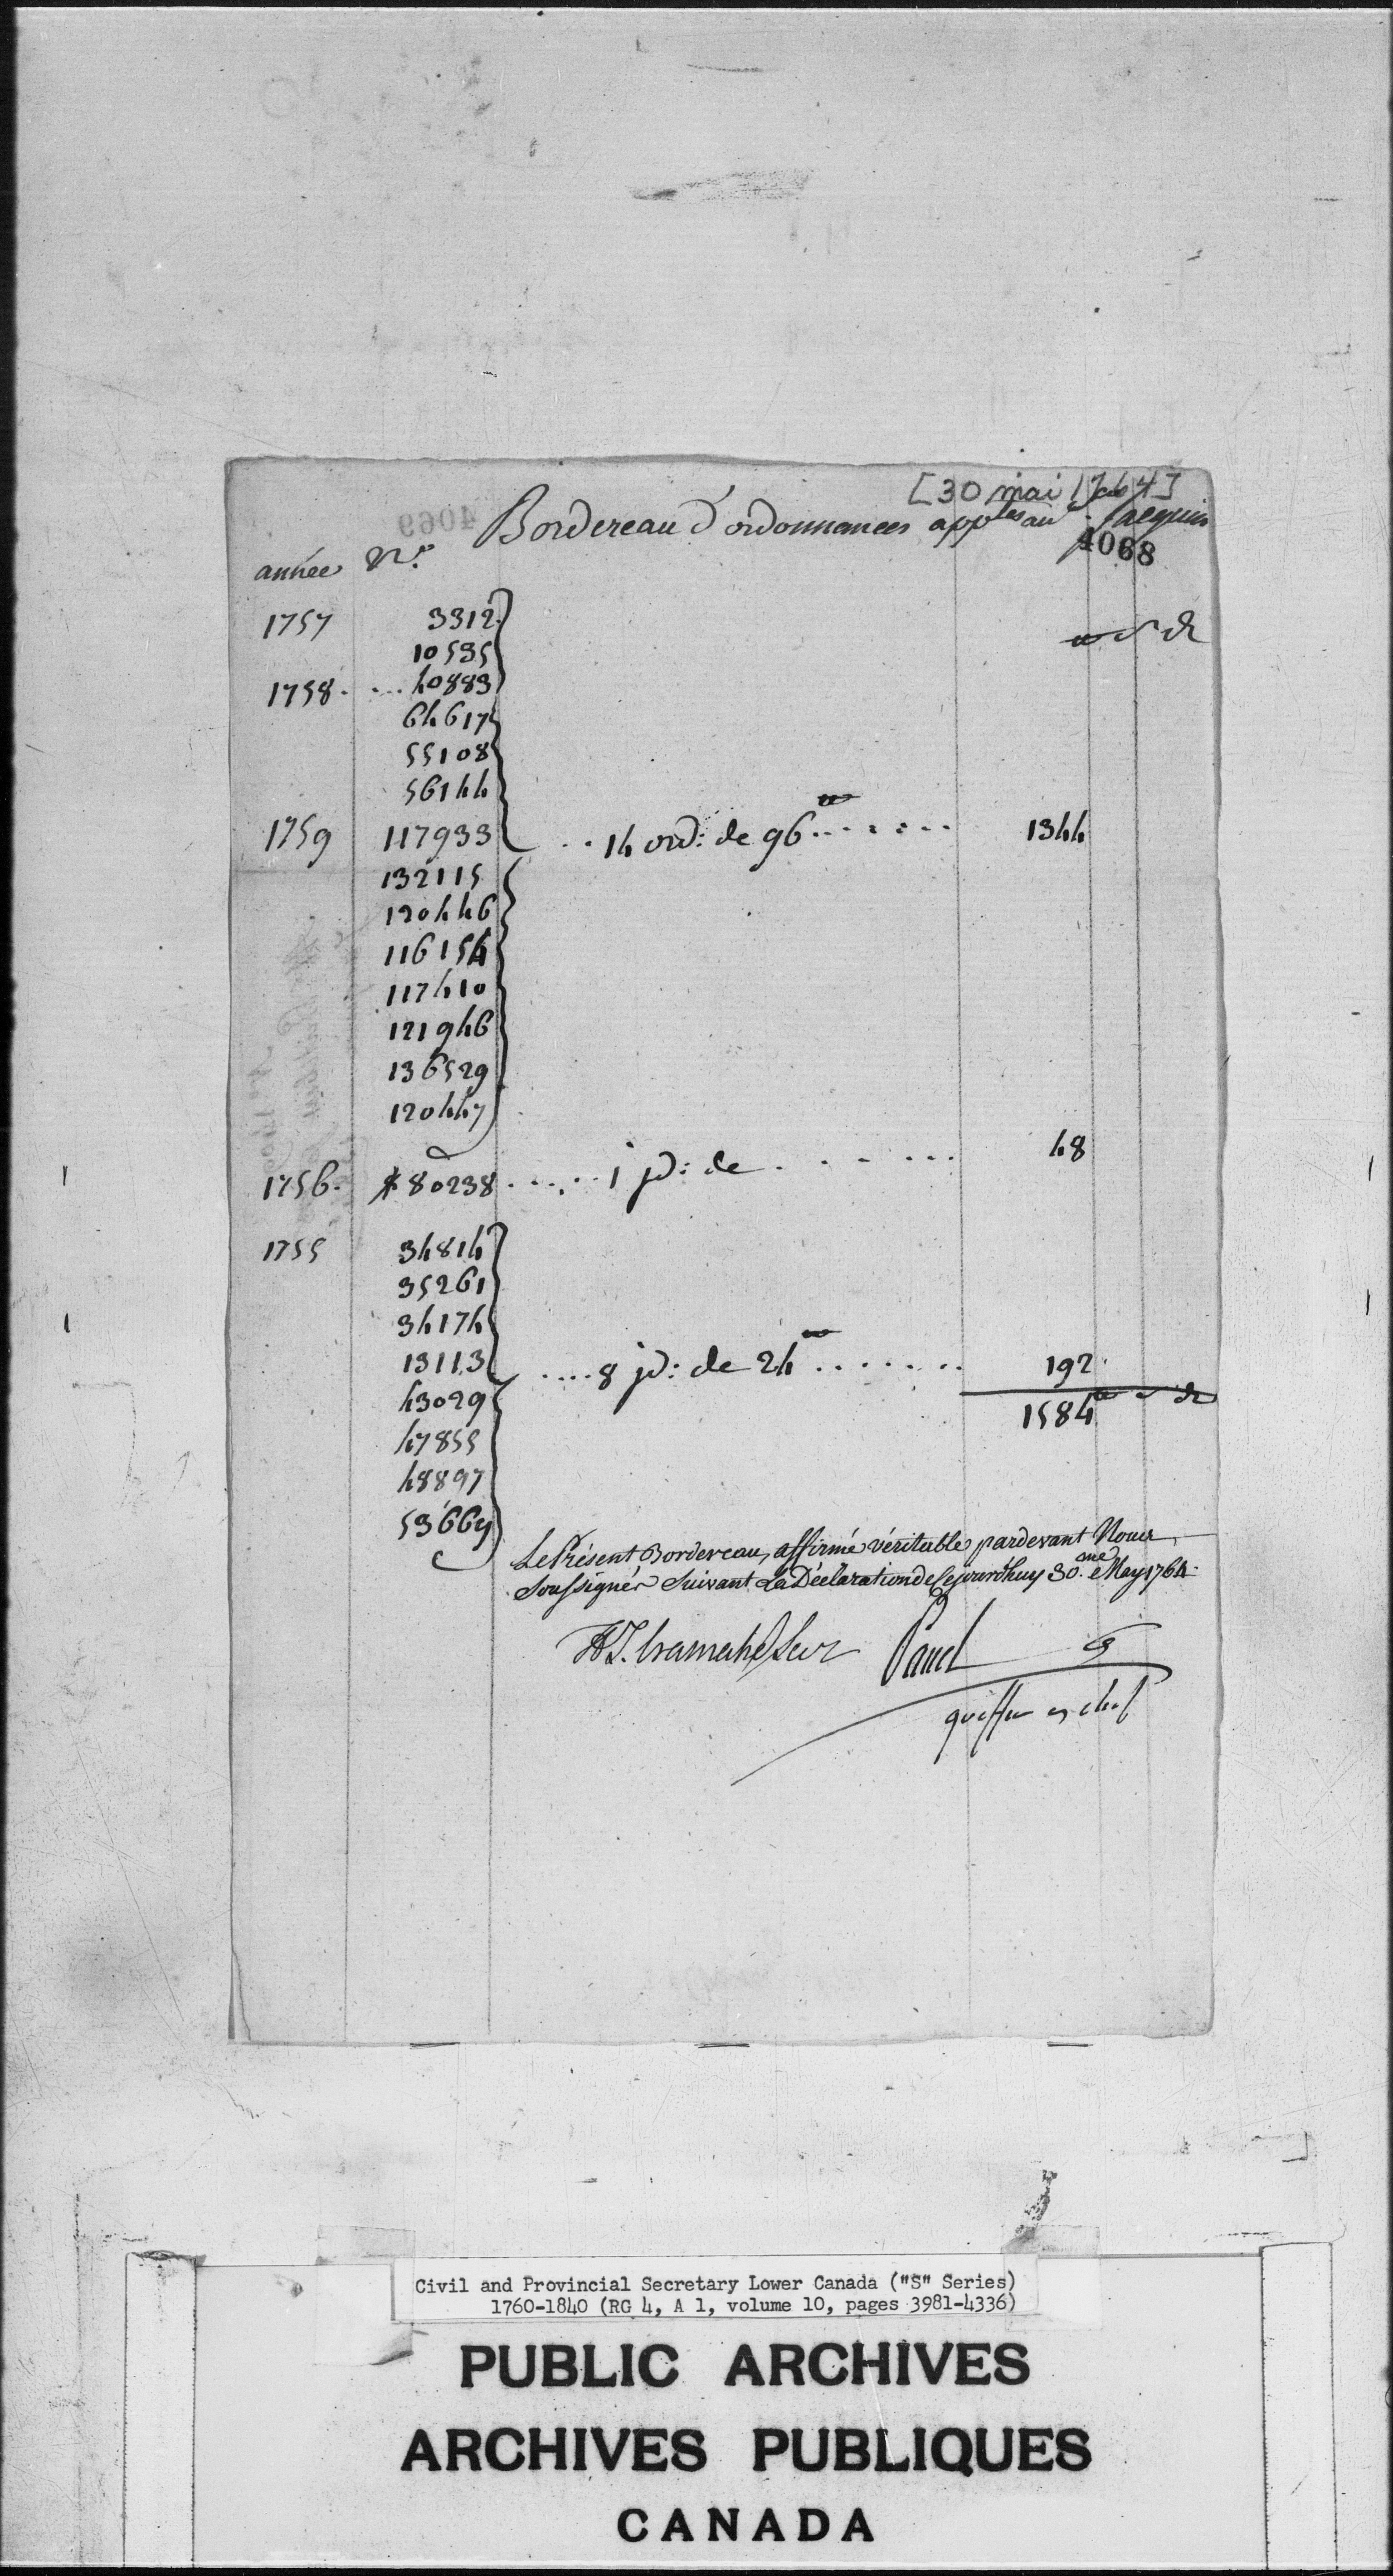 [30 mai 1764]
Bordereau d'ordonnances app.les au S. Jacquin
4068
année N.o
1757 3312
10535
1758. ... 40883
64617
55108
56144
1759 117933 ... 14 ord: de 96 ....... 1344
132115
120446
116154
117410
121946
136529
120447
1756. 80238 ...... 1 jd: de ....... 48
1755 34814
35261
34174
13113 .... 8 jd: de 24 ....... 192
43029 1584
47855
48897
53669
Le Présent Bordereau, affirmé véritable pardevant Nous
Soussignés Suivant La Déclaration de Cejourd'huy 30.me May 1764.
H T. Cramahé Secr Panet
greffier en chef
Civil and Provincial Secretary Lower Canada ("S" Series)
1760-1840 (RG 4, A 1, volume 10, pages 3981-4336)
PUBLIC ARCHIVES
ARCHIVES PUBLIQUES
CANADA